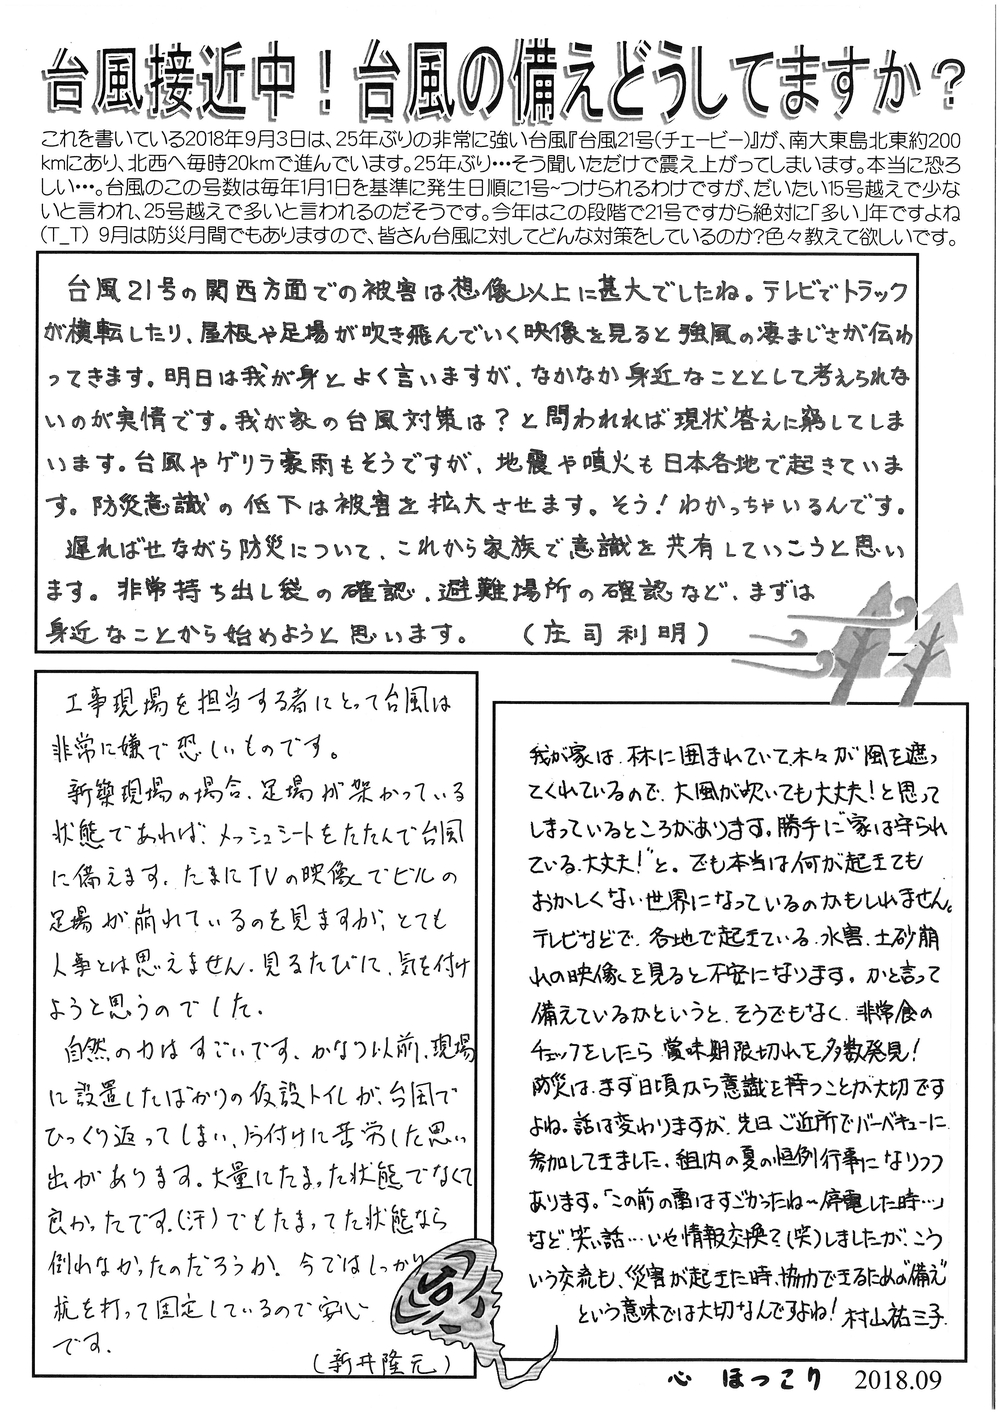 台風接近中！台風の備えどうしてますか？
これを書いている2018年9月3日は、25年ぶりの非常に強い台風『台風21号(チェービー)』が、南大東島北東約200
kmにあり、北西へ毎時20kmで進んでいます。25年ぶり…そう聞いただけで震え上がってしまいます。本当に恐ろ
しい…。台風のこの号数は毎年1月1日を基準に発生日順に1号~つけられるわけですが、だいたい15号越えで少な
いと言われ、25号越えで多いと言われるのだそうです。今年はこの段階で21号ですから絶対に「多い」年ですよね
(T_T) 9月は防災月間でもありますので、皆さん台風に対してどんな対策をしているのか?色々教えて欲しいです。
台風21号の関西方面での被害は想像以上に甚大でしたね。テレビでトラック
が横転したり、屋根や足場が吹き飛んでいく映像を見ると強風の凄まじさが伝わ
ってきます。明日は我が身とよく言いますが、なかなか身近なこととして考えられな
いのが実情です。我が家の台風対策は？と問われれば現状答えに窮してしま
います。台風やゲリラ豪雨もそうですが、地震や噴火も日本各地で起きていま
す。防災意識の低下は被害を拡大させます。そう！わかっちゃいるんです。
遅ればせながら防災について、これから家族で意識を共有していこうと思い
ます。非常持ち出し袋の確認、避難場所の確認など、まずは
身近なことから始めようと思います。 (庄司利明)
工事現場を担当する者にとって台風は
非常に嫌で恐しいものです。
新築現場の場合、足場が架かっている
状態であれば、メッシュシートをたたんで台風
に備えます。たまにTVの映像でビルの
足場が崩れているのを見ますが、とても
人事とは思えません。見るたびに、気を付け
ようと思うのでした。
自然の力はすごいです、かなり以前、現場
に設置したばかりの仮設トイレが、台風で
ひっくり返ってしまい、片付けに苦労した思い
出があります。大量にたまった状態でなくて
良かったです。(汗)でもたまってた状態なら
倒れなかったのだろうか。今ではしっかり
杭を打って固定しているので安心
です。
(新井隆元)
我が家は、林に囲まれていて、木々が風を遮っ
てくれているので、大風が吹いても大丈夫！と思って
しまっているところがあります。勝手に"家は守られ
ている、大丈夫！"と。でも本当は何が起きても
おかしくない世界になっているのかもしれません。
テレビなどで、各地で起きている、水害、土砂崩
れの映像を見ると不安になります。かと言って
備えているかというと、そうでもなく、非常食の
チェックをしたら賞味期限切れを多数発見！
防災は、まず日頃から意識を持つことが大切です
よね。話は変わりますが、先日ご近所でバーベキューに
参加してきました。組内の夏の恒例行事になりつつ
あります。「この前の雷はすごかったね～停電した時…」
など、笑い話…いや情報交換？(笑)しましたが、こう
いう交流も、災害が起きた時、協力できるための"備え"
という意味では大切なんですよね！ 村山祐三子
台
心 ほっこり 2018.09